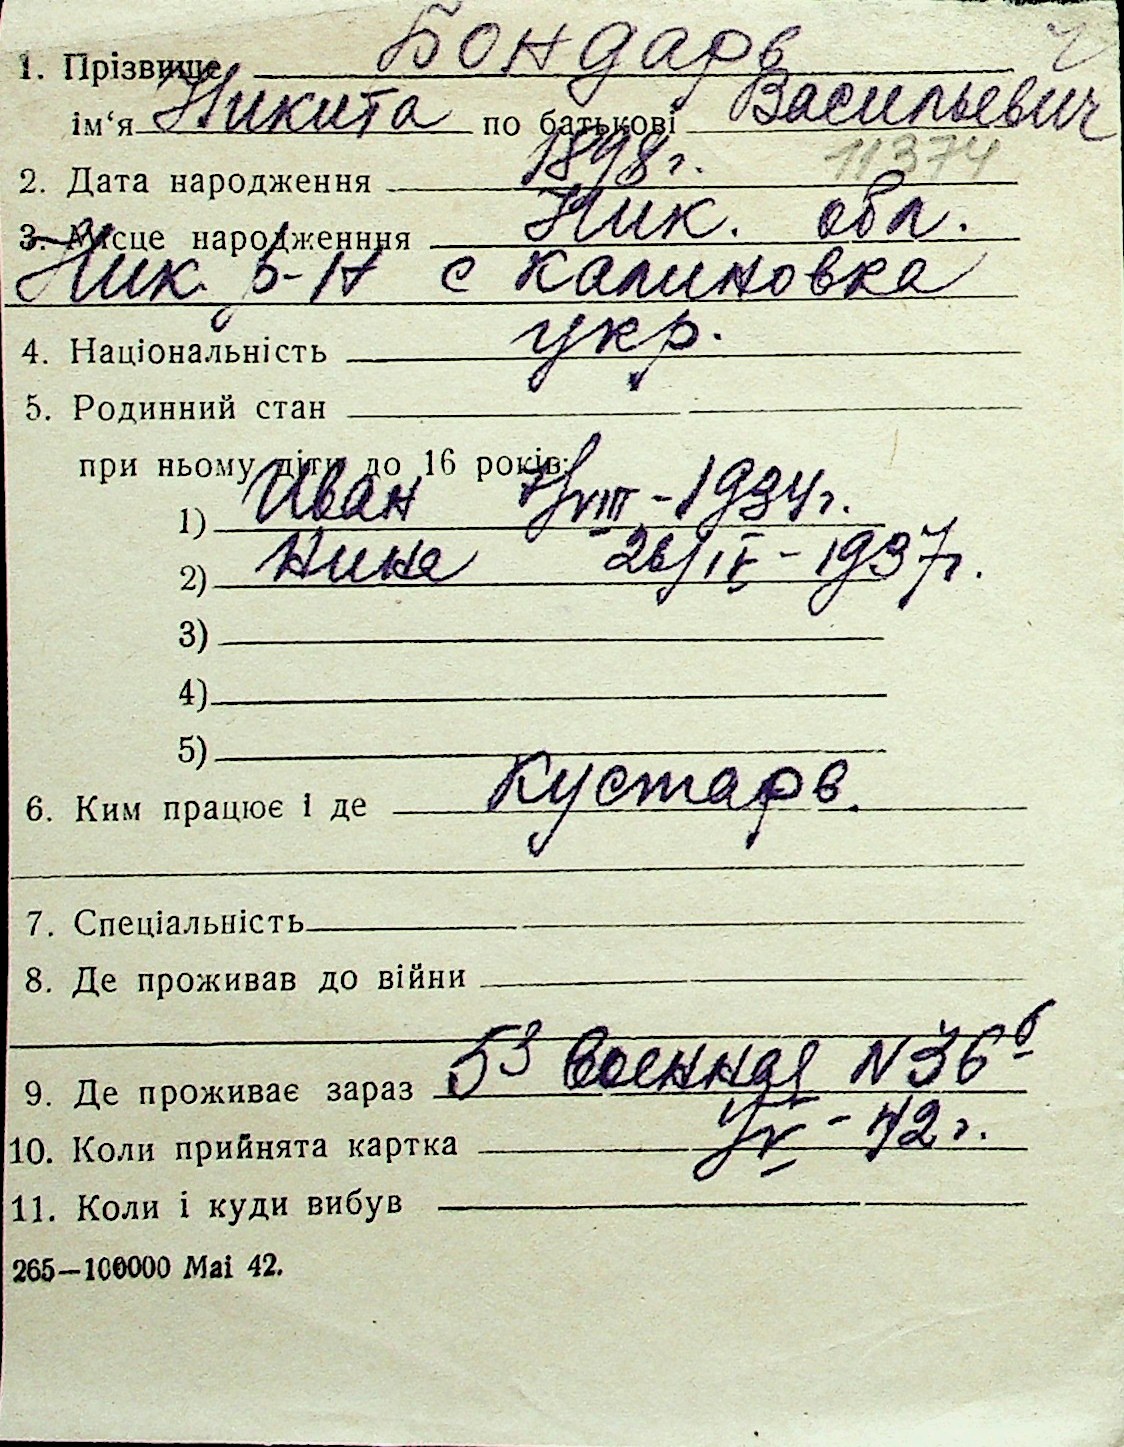 1. Прізвище Бондарь
ім‘я Никита по батькові Васильевич
11374
2. Дата народження 1898 г.
3. Місце народженння Ник. обл.
Ник. р-н с Калиновка
4. Національність укр.
5. Родинний стан
при ньому діти до 16 років:
1) Иван 7/VIII - 1934 г.
2) Нина 26/IV - 1937 г.
3)
4)
5)
6. Ким працює і де Кустарь.
7. Спеціальність
8. Де проживав до війни
9. Де проживає зараз 53 Военная N 36 б
10. Коли прийнята картка - 42 г.
11. Коли і куди вибув
265—100000 Mai 42.